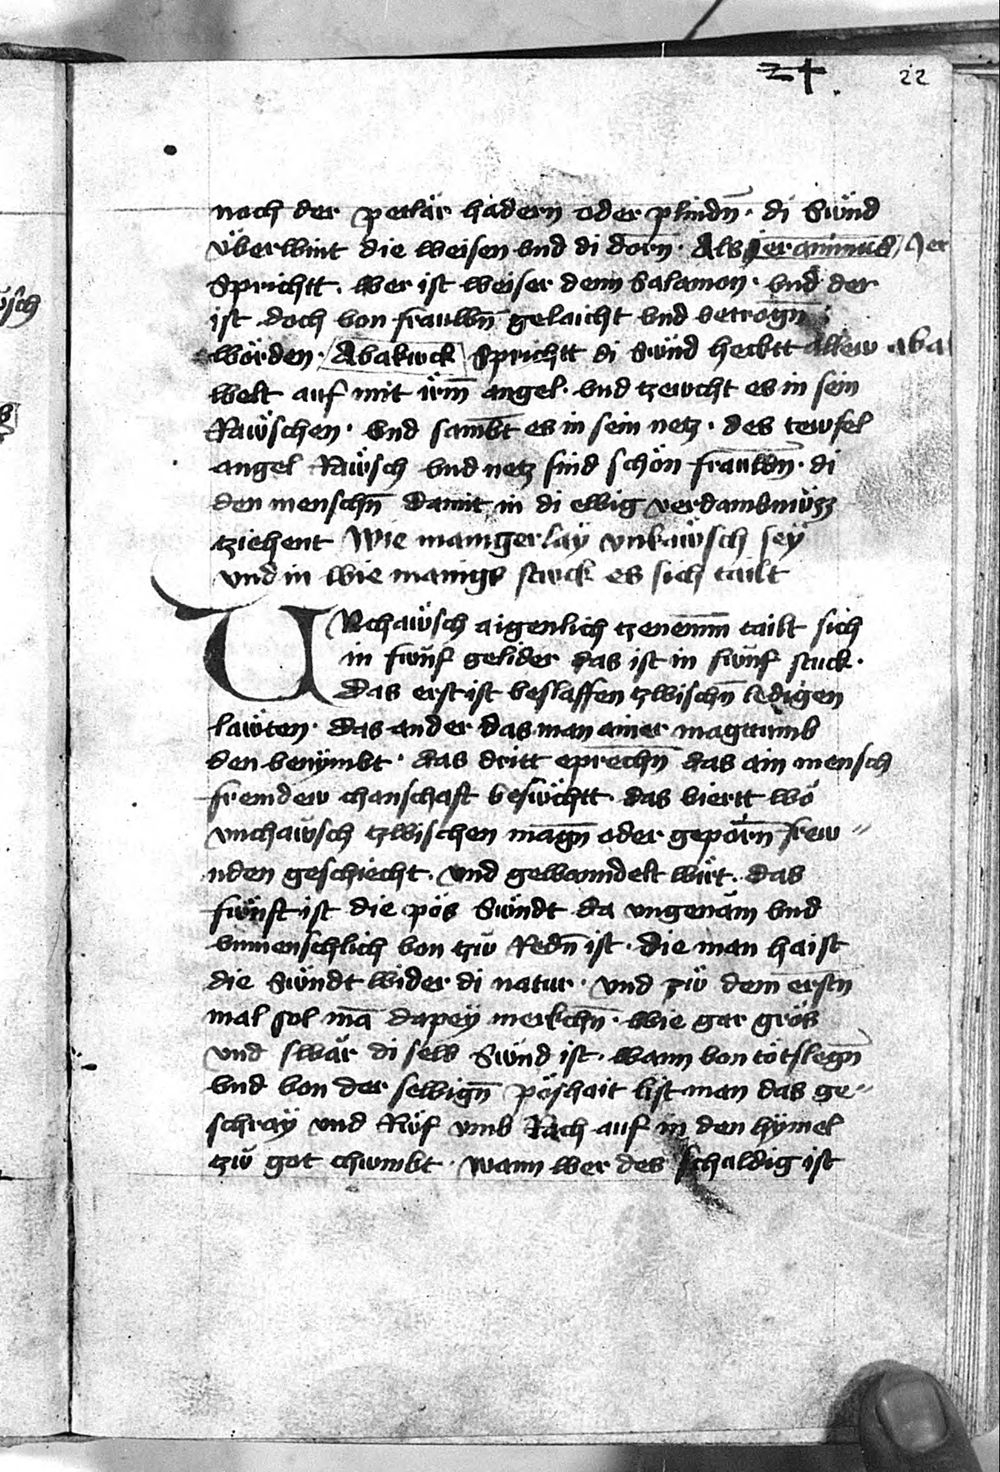 22
noch der petlär hadern oder plindn̄ · di Swünd
vberwint die weisen vnd di dorn̄ · Als Jeronimus Jer
Sprichtt · wer ist weiser denn Salamon · vnd der
ist doch von frauwn̄ gelaicht vnd betrogn̄
wörden · Abakuck Sprichtt di Swünd hecktt allew aba
welt auf mit irm̄ angel · vnd tzewcht es in sein
Rawschen · vnd sambt es in sein netz · des tewfel
angel Rawsch vnd netz sind schön frauwn̄ · di
den menschn̄ damit in di ewig verdambnüzz
tziehent Wie manigerlaÿ vnkawsch seÿ
vnd in wie manigs stuck es sich tailt
UNchawsch aigenlich tzenem̄m tailt sich
in fwnf gelider das ist in fwnf stuck ·
das erst ist beslaffen tzwischn̄ ledigen
lawten · das ander das man ainer magttumb
den benÿmbt · das dritt eprechn̄ das ain mensch
fremdew chanschaft beswöchtt · das viertt wo
vnchawsch tzwischen magn̄ oder geporn̄ frew
nden geschiecht · vnd gewanndelt wirt · das
fwnft ist die pös Swündt da vngenam vnd
vnmenschlich von tzw Redn̄ ist · die man haist
die Swündt wider di natur · vnd zw dem erstn̄
mal sol mā dapeÿ merkchn̄ · wie gar grös
vnd swär di selb Swünd ist · wann von tötslegn̄
vnd von der selbign̄ pöshait list man das ge
schraÿ vnd Rüf vmb Rach auf in den hÿmel
tzw got chwmbt · wann wer des schuldig ist